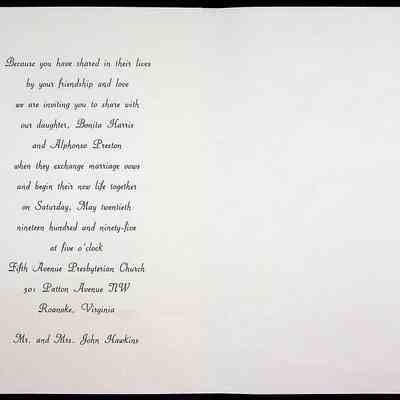 Because you have shared in their lives
by your friendship and love
we are inviting you to share with
our daughter, Bonita Harris
and Alphonso Preston
when they exchange marriage vows
and begin their new life together
on Saturday, May twentieth
nineteen hundred and ninety-five
at five o'clock
Fifth Avenue Presbyterian Church
301 Patton Avenue NW
Roanoke, Virginia
Mr. and Mrs. John Hawkins